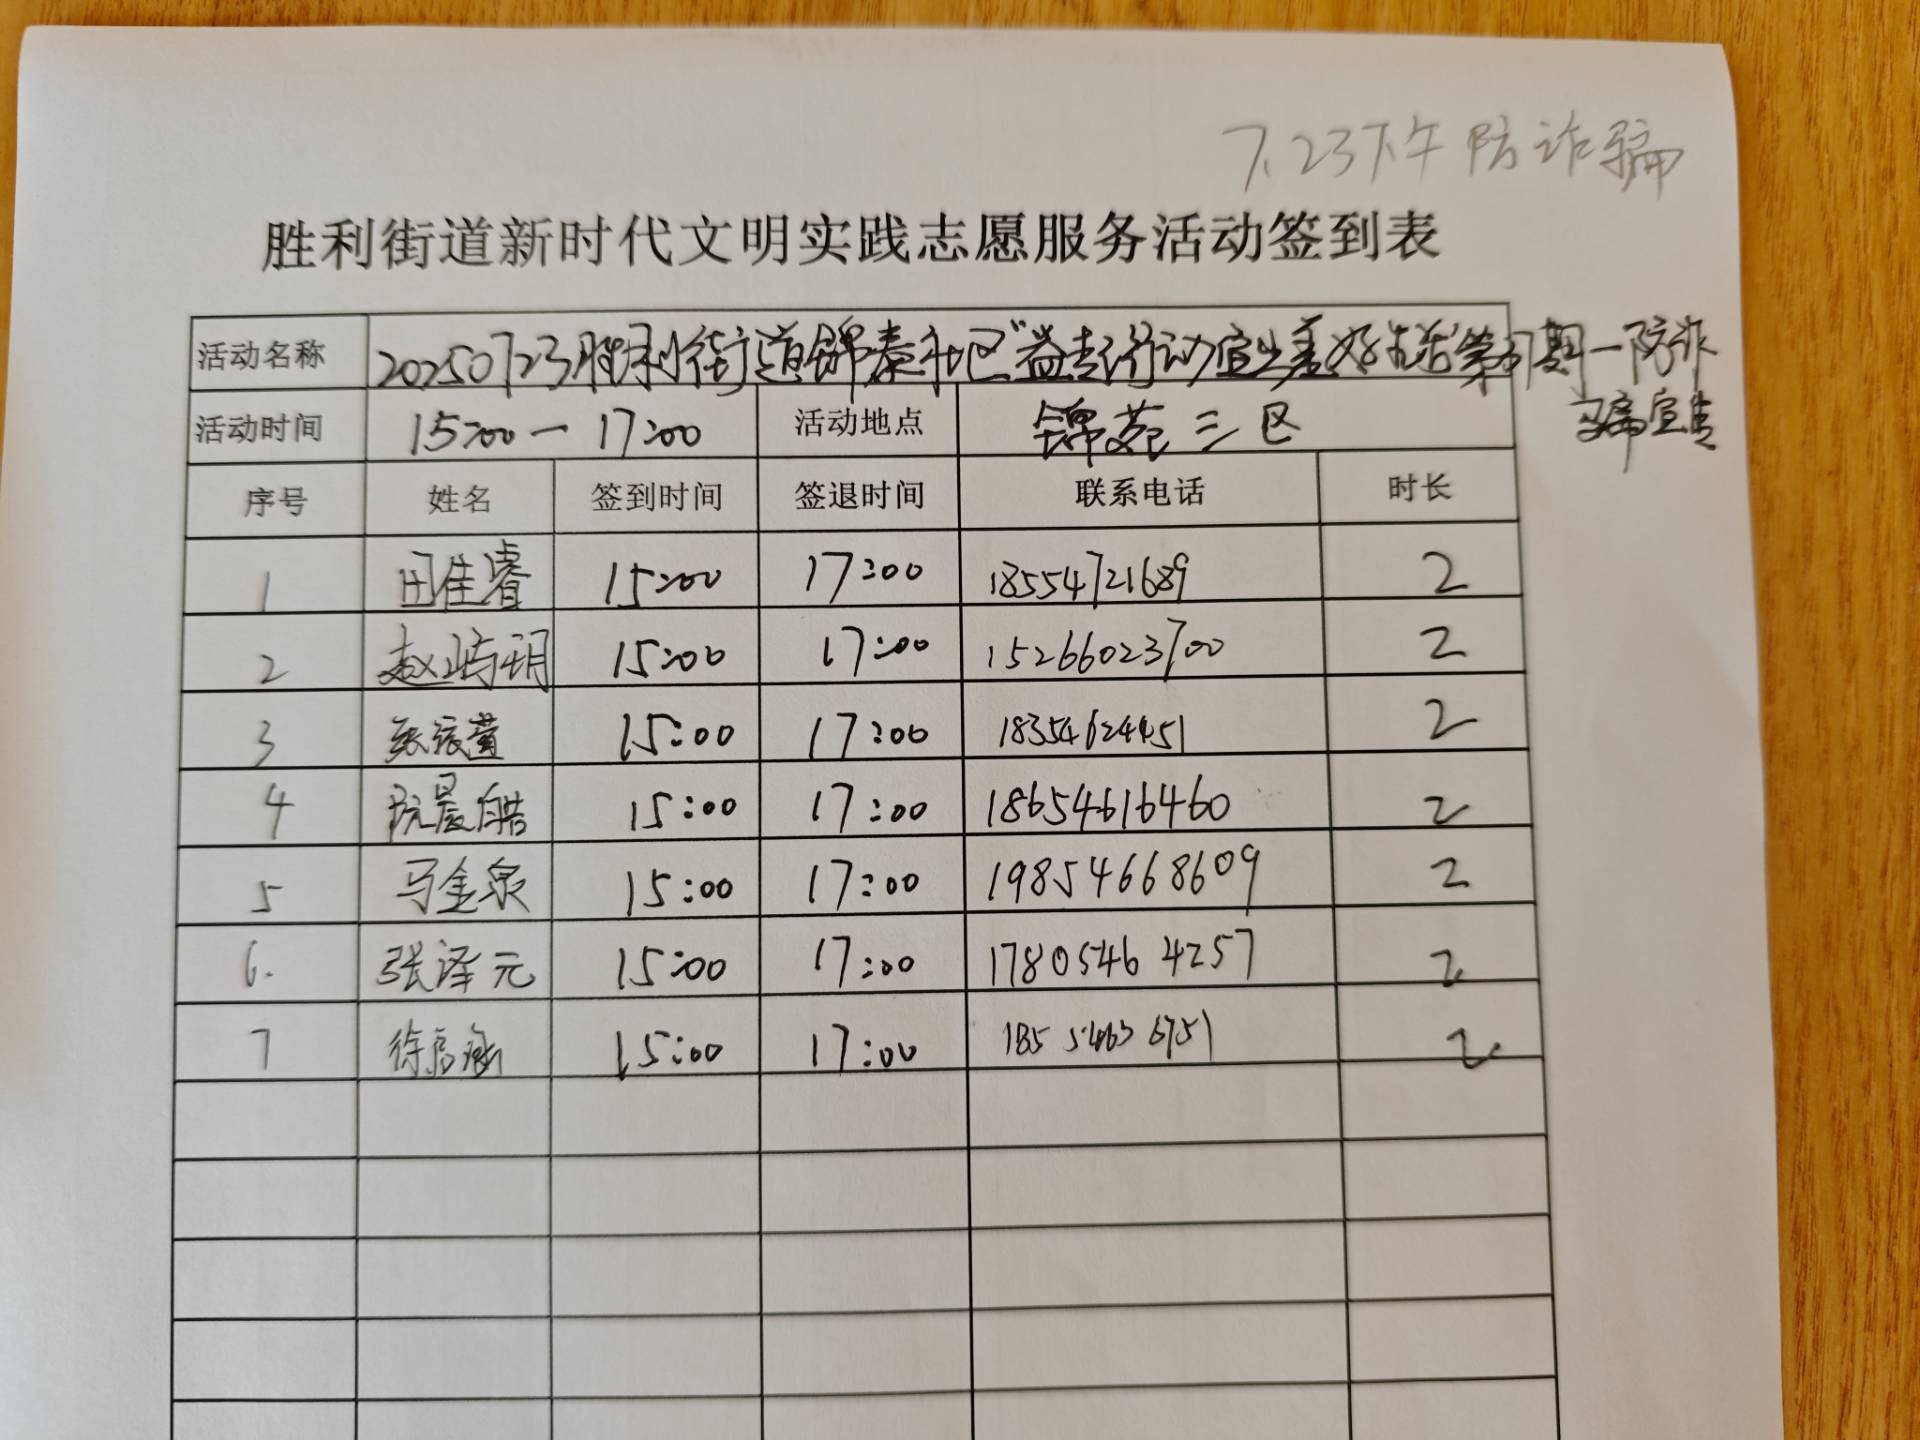 7.23下午 防诈骗
胜利街道新时代文明实践志愿服务活动签到表
活动名称 20250723胜利街道锦泰社区"益起行动宜生美好生活"第 期—防诈
骗宣传
活动时间 15:00—17:00 活动地点 锦苑三区
序号 姓名 签到时间 签退时间 联系电话 时长
1 田佳睿 15:00 17:00 18554721689 2
2 赵屿玥 15:00 17:00 15266023700 2
3 15:00 17:00 18354624451 2
4 阮晨皓 15:00 17:00 18654616460 2
5 马金泉 15:00 17:00 19854668609 2
6. 张泽元 15:00 17:00 17805464257 2
7 徐 涵 15:00 17:00 185 5463 6751 2